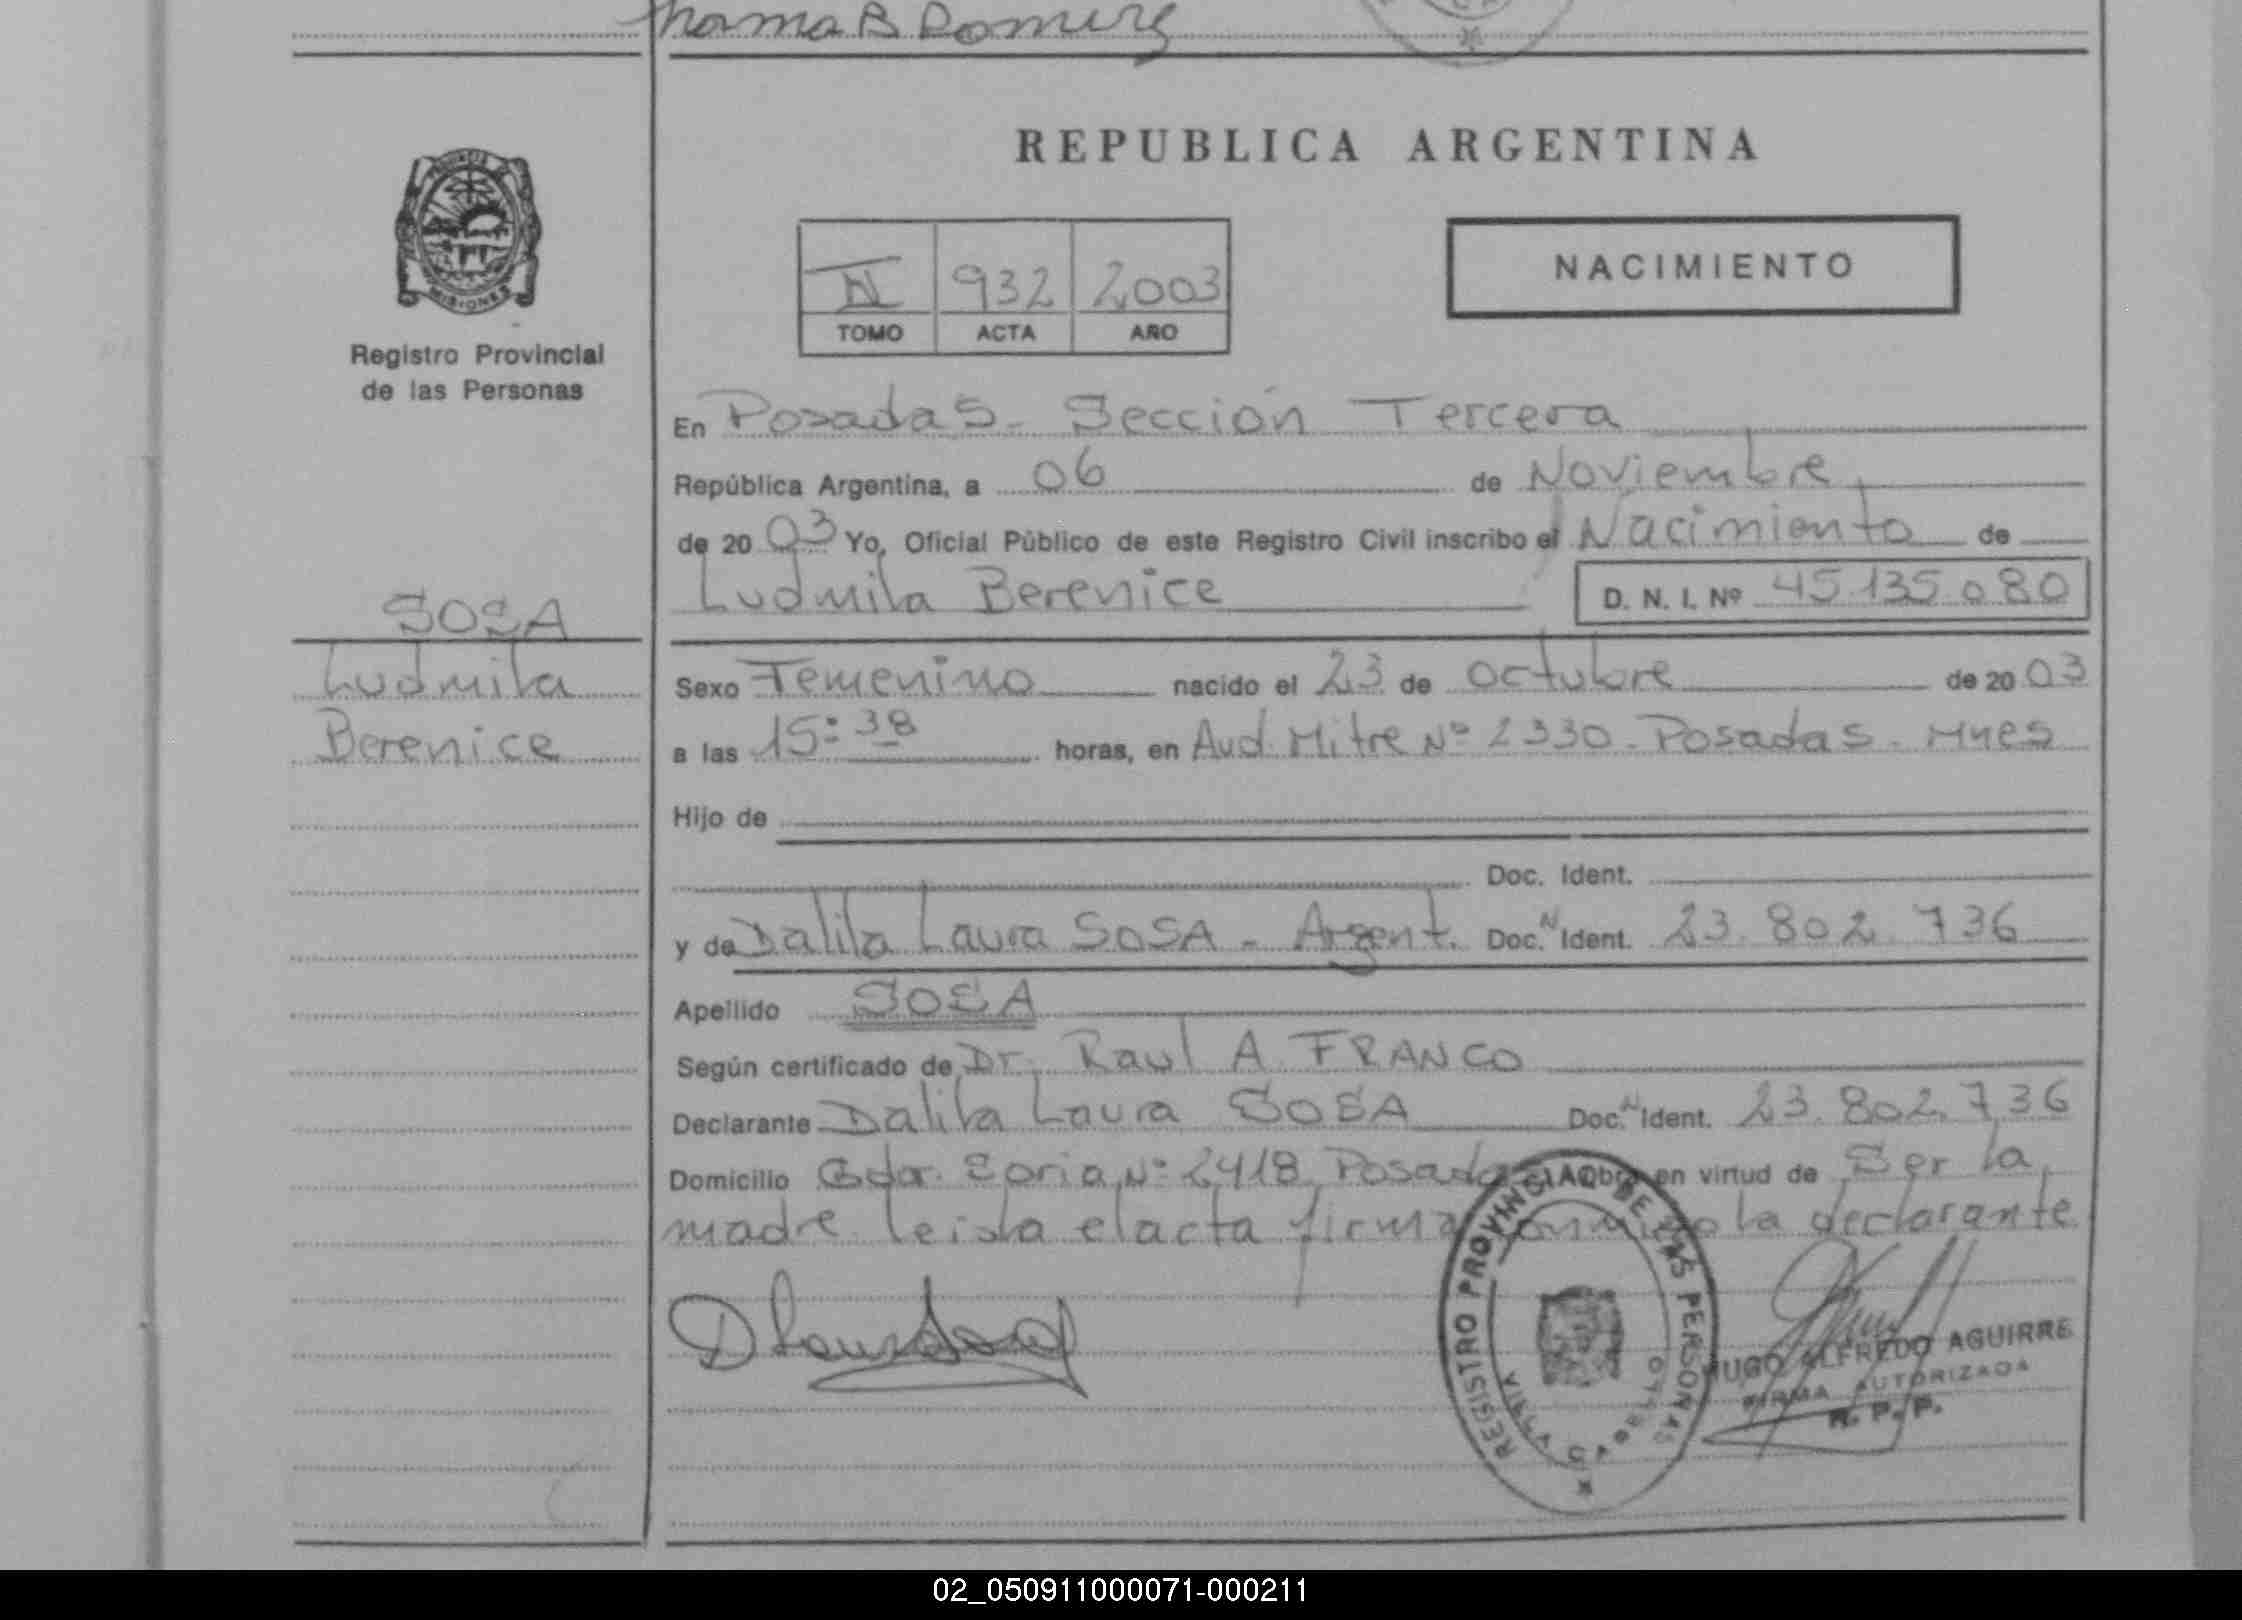 Norma B Romirez
REPUBLICA ARGENTINA
MISIONES
Registro Provincial
de las Personas
NACIMIENTO
IV 932 2003
TOMO ACTA AÑO
En Posadas - Sección Tercera
República Argentina, a 06 de Noviembre
de 20 03 Yo, Oficial Público de este Registro Civil inscribo el Nacimiento de
Ludmila Berenice D. N. I. Nº 45.135.080
SOSA
Ludmila
Berenice
Sexo Femenino nacido el 23 de octubre de 20 03
a las 15:38 horas, en Avd. Mitre Nº 2330 - Posadas - Mnes
Hijo de
Doc. Ident.
y de Dalila Laura SOSA - Argent. Doc. N Ident. 23.802.736
Apellido SOSA
Según certificado de Dr. Raul A. FRANCO
Declarante Dalila Laura SOSA Doc. N Ident. 23.802.736
Domicilio Gdor. Soria Nº 2418 Posadas Obra en virtud de Ser la
madre leida el acta firma conmigo la declarante
REGISTRO PROVINCIAL DE LAS PERSONAS
HUGO ALFREDO AGUIRRE
FIRMA AUTORIZADA
R. P. P.
02_050911000071-000211